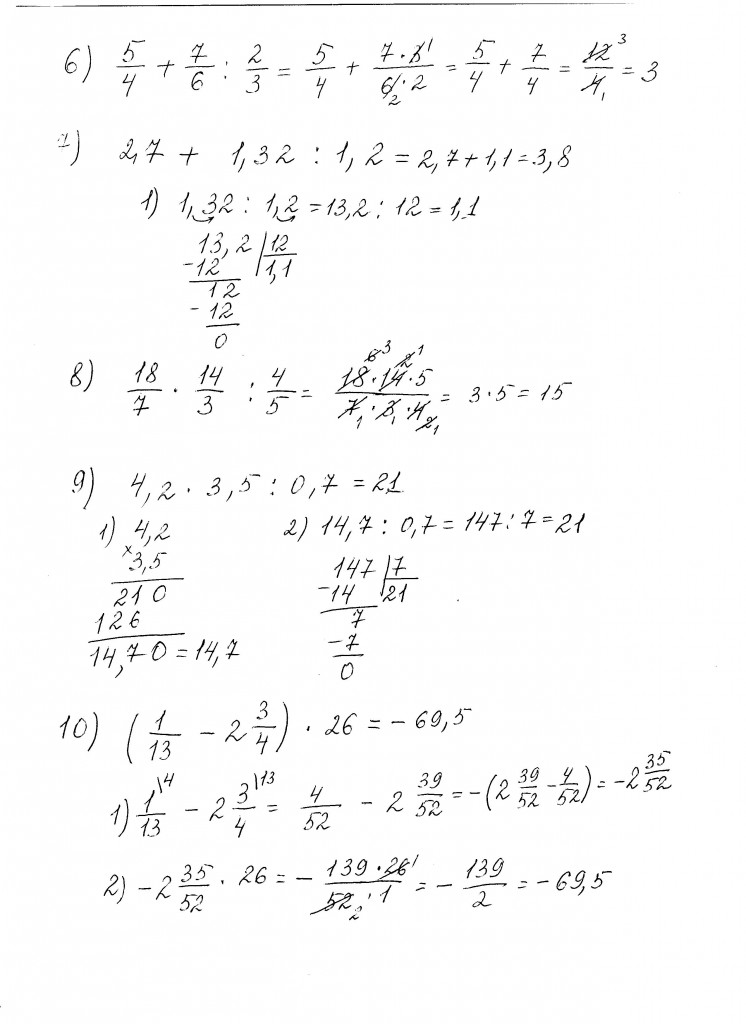 6) 5/4 + 7/6 : 2/3 = 5/4 + 7·3¹/6₂·2 = 5/4 + 7/4 = 12³/4₁ = 3
7) 2,7 + 1,32 : 1,2 = 2,7 + 1,1 = 3,8
1) 1,32 : 1,2 = 13,2 : 12 = 1,1
13,2 | 12
-12 1,1
12
- 12
0
8) 18/7 · 14/3 : 4/5 = 18·14·5/7·3·4 = 3·5 = 15
9) 4,2 · 3,5 : 0,7 = 21
1) 4,2
x 3,5
210
126
14,70 = 14,7
2) 14,7 : 0,7 = 147 : 7 = 21
147 | 7
-14 21
7
-7
0
10) (1/13 - 2 3/4) · 26 = - 69,5
1) 1/13 \4 - 2 3/4 \13 = 4/52 - 2 39/52 = -(2 39/52 - 4/52) = -2 35/52
2) -2 35/52 · 26 = - 139·26¹/52₂·1 = - 139/2 = - 69,5